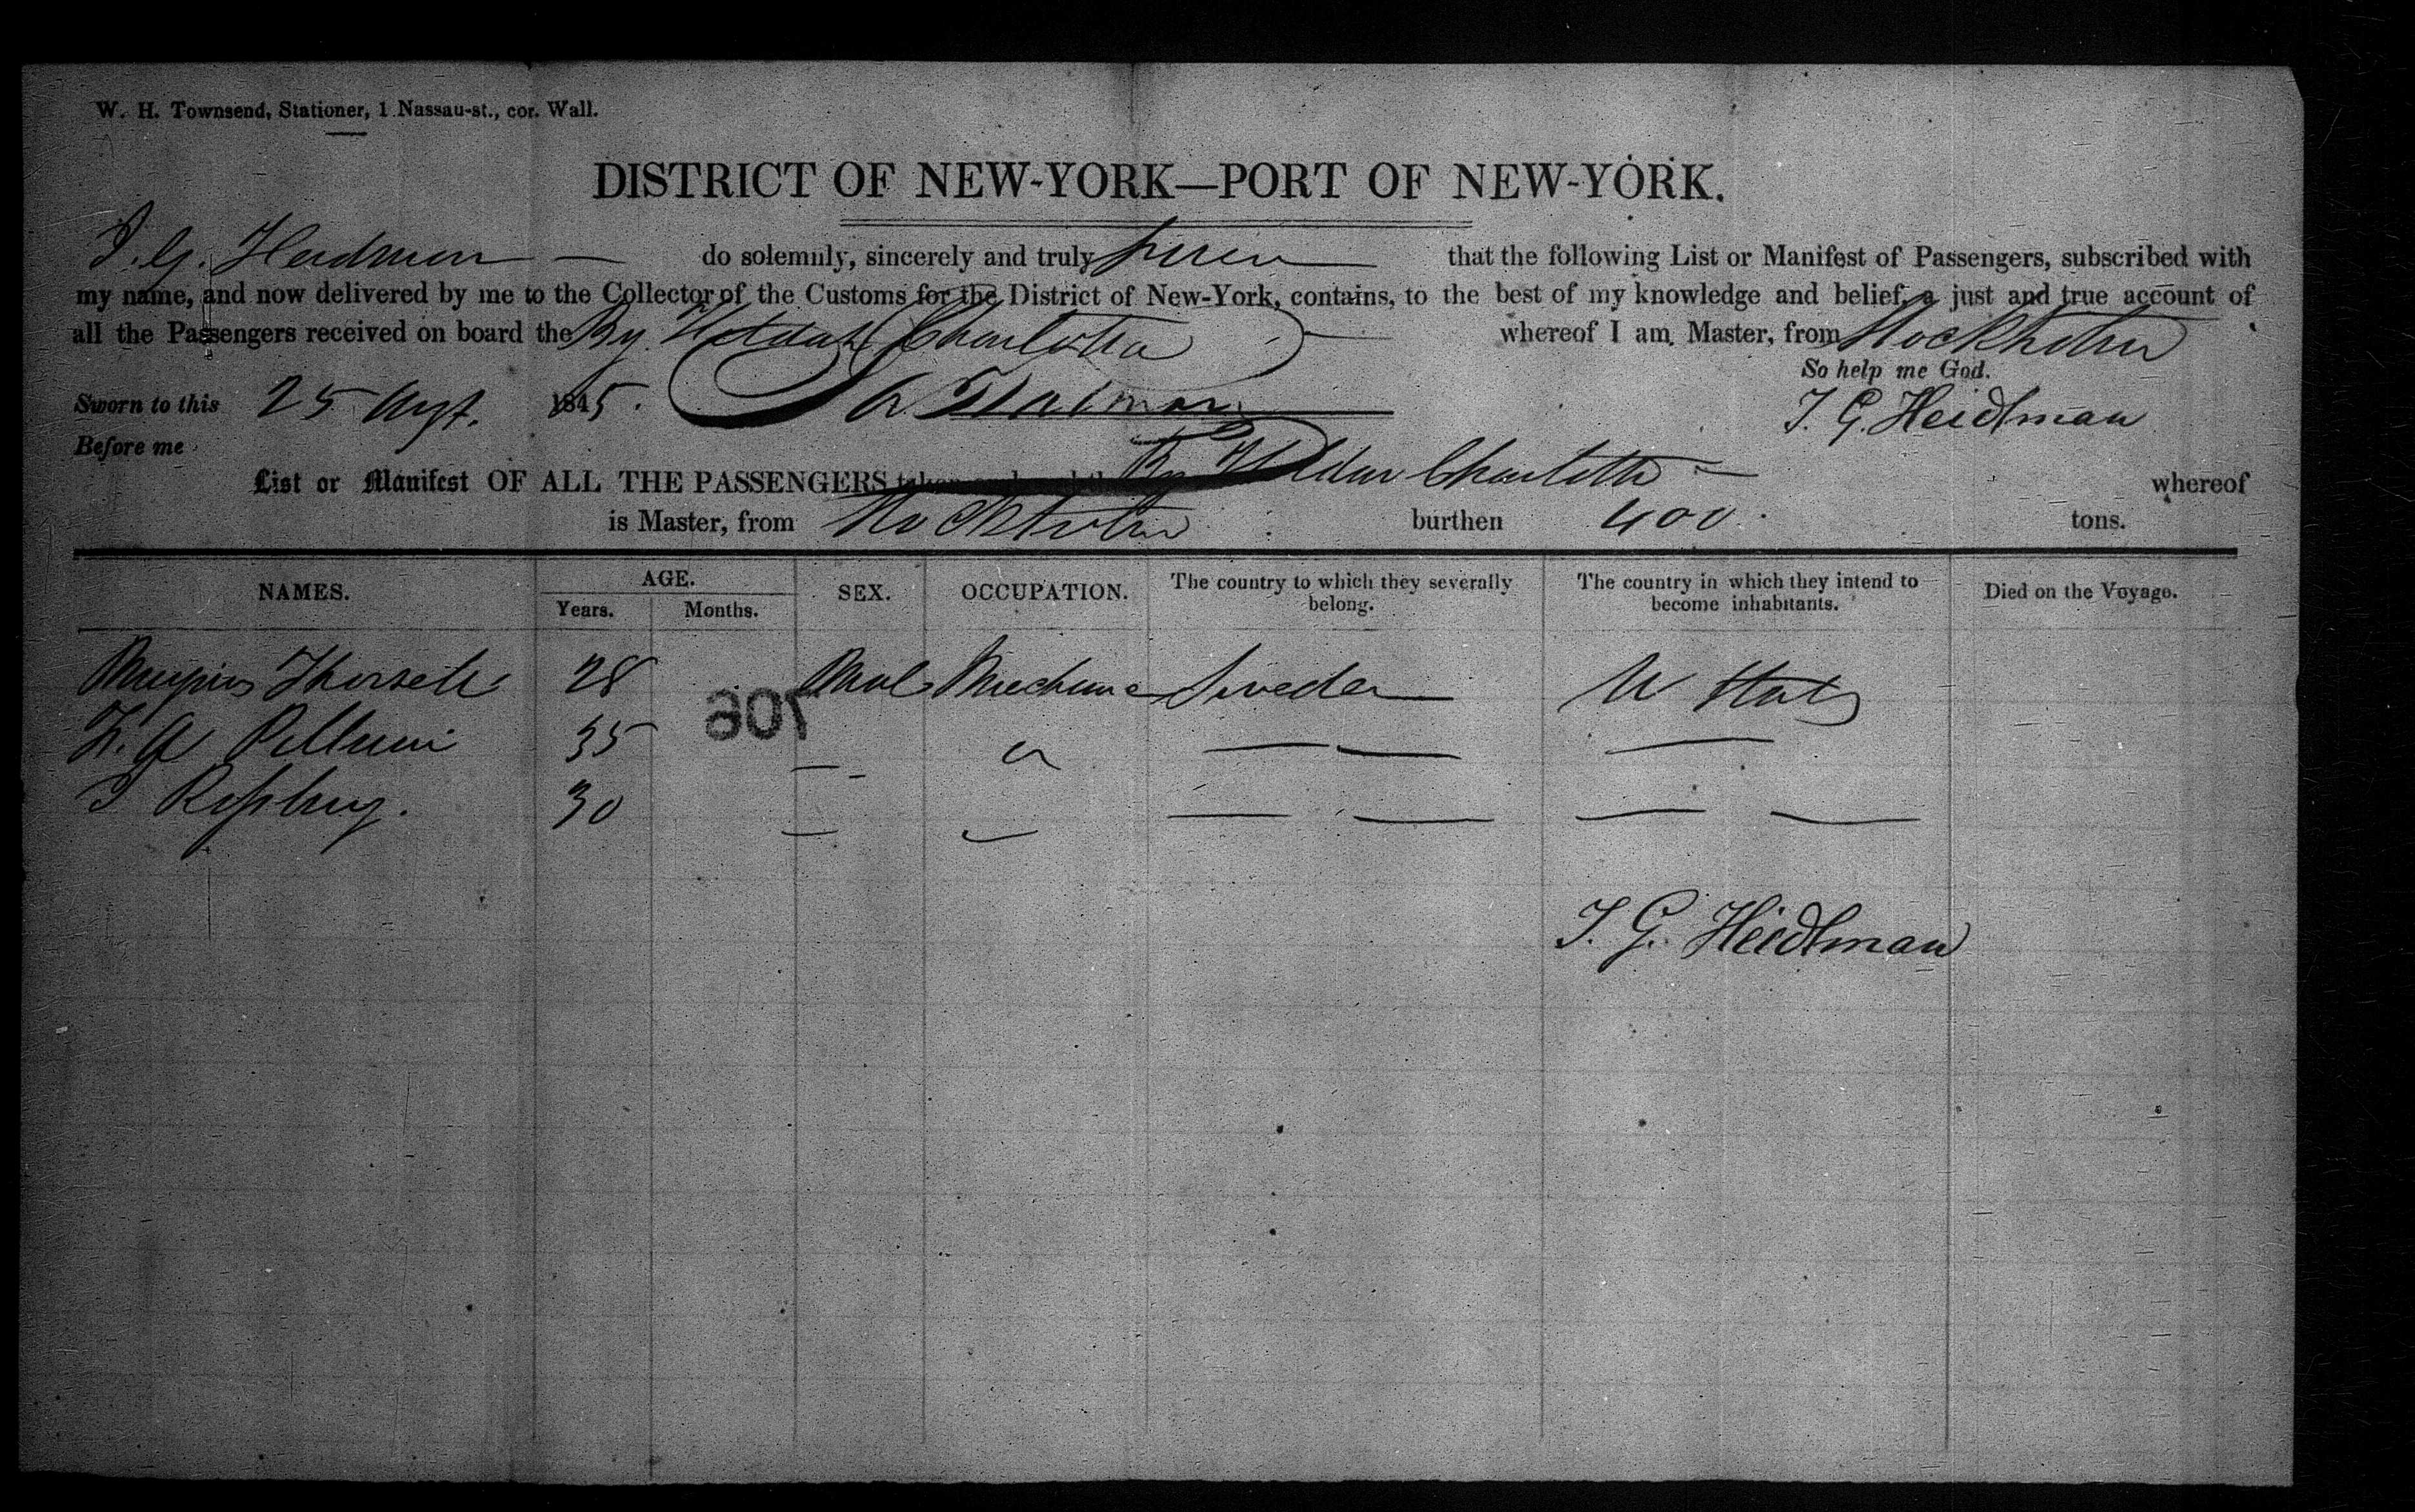 W. H. Townsend, Stationer, 1 Nassau-st., cor. Wall.
DISTRICT OF NEW-YORK—PORT OF NEW-YORK.
do solemnly, sincerely and truly that the following List or Manifest of Passengers, subscribed with
my name, and now delivered by me to the Collector of the Customs for the District of New-York, contains, to the best of my knowledge and belief, a just and true account of
all the Passengers received on board the Charlotta whereof I am Master, from Stockholm
So help me God.
Sworn to this 25 Augt. 1845. T. G. Heidlman
Before me
List or Manifest OF ALL THE PASSENGERS Charlotta whereof
is Master, from Stockholm burthen 400 tons.
NAMES. AGE. SEX. OCCUPATION. The country to which they severally belong. The country in which they intend to become inhabitants. Died on the Voyage.
Years. Months.
28 Male Mechanic Sweden U States
35
30
706
T. G. Heidlman